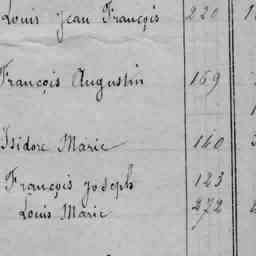 Louis Jean François 220
François Augustin 159
Isidore Marie 140
François Joseph 123
Louis Marie 272